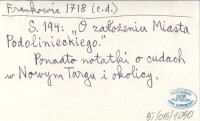 Frankowic 1718 (c.d.)
S. 194: „O założeniu Miasta
Podolinieckiego."
Ponadto notatki o cudach
w Nowym Targu i okolicy.